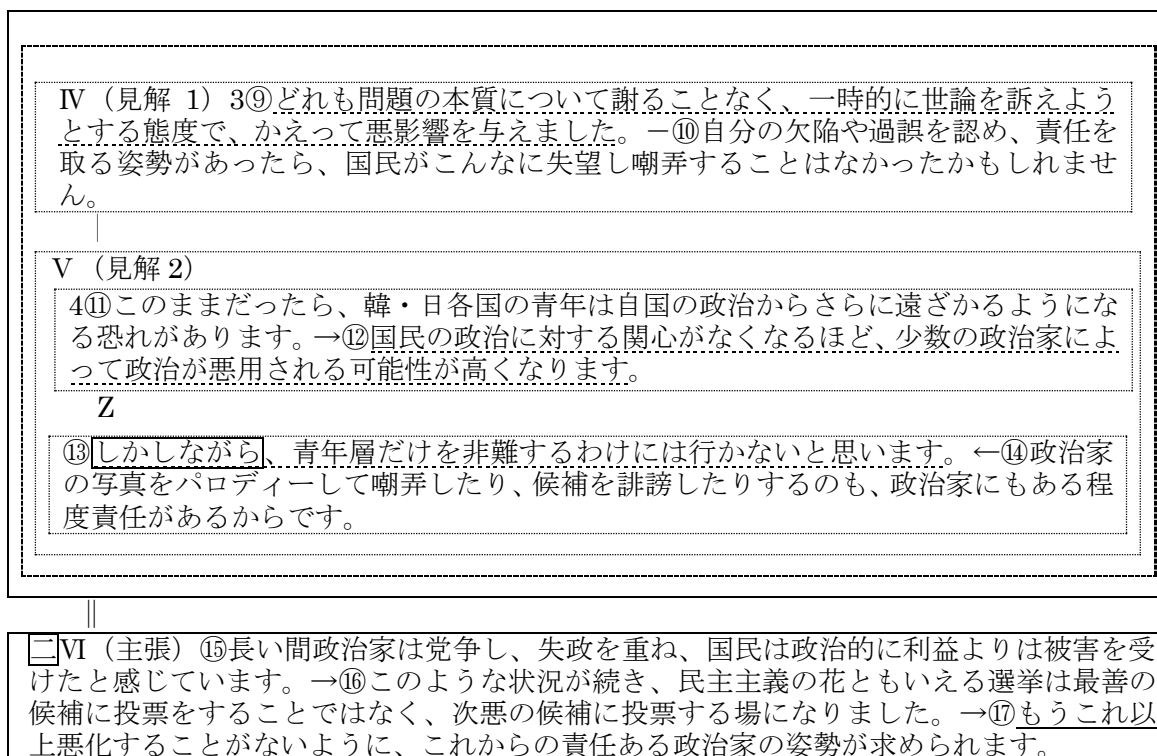 Ⅳ（見解 1）3⑨どれも問題の本質について謝ることなく、一時的に世論を訴えよう
とする態度で、かえって悪影響を与えました。－⑩自分の欠陥や過誤を認め、責任を
取る姿勢があったら、国民がこんなに失望し嘲弄することはなかったかもしれませ
ん。
Ⅴ（見解 2）
4⑪このままだったら、韓・日各国の青年は自国の政治からさらに遠ざかるようにな
る恐れがあります。→⑫国民の政治に対する関心がなくなるほど、少数の政治家によ
って政治が悪用される可能性が高くなります。
Z
⑬しかしながら、青年層だけを非難するわけには行かないと思います。←⑭政治家
の写真をパロディーして嘲弄したり、候補を誹謗したりするのも、政治家にもある程
度責任があるからです。
||
二Ⅵ（主張）⑮長い間政治家は党争し、失政を重ね、国民は政治的に利益よりは被害を受
けたと感じています。→⑯このような状況が続き、民主主義の花ともいえる選挙は最善の
候補に投票をすることではなく、次悪の候補に投票する場になりました。→⑰もうこれ以
上悪化することがないように、これからの責任ある政治家の姿勢が求められます。